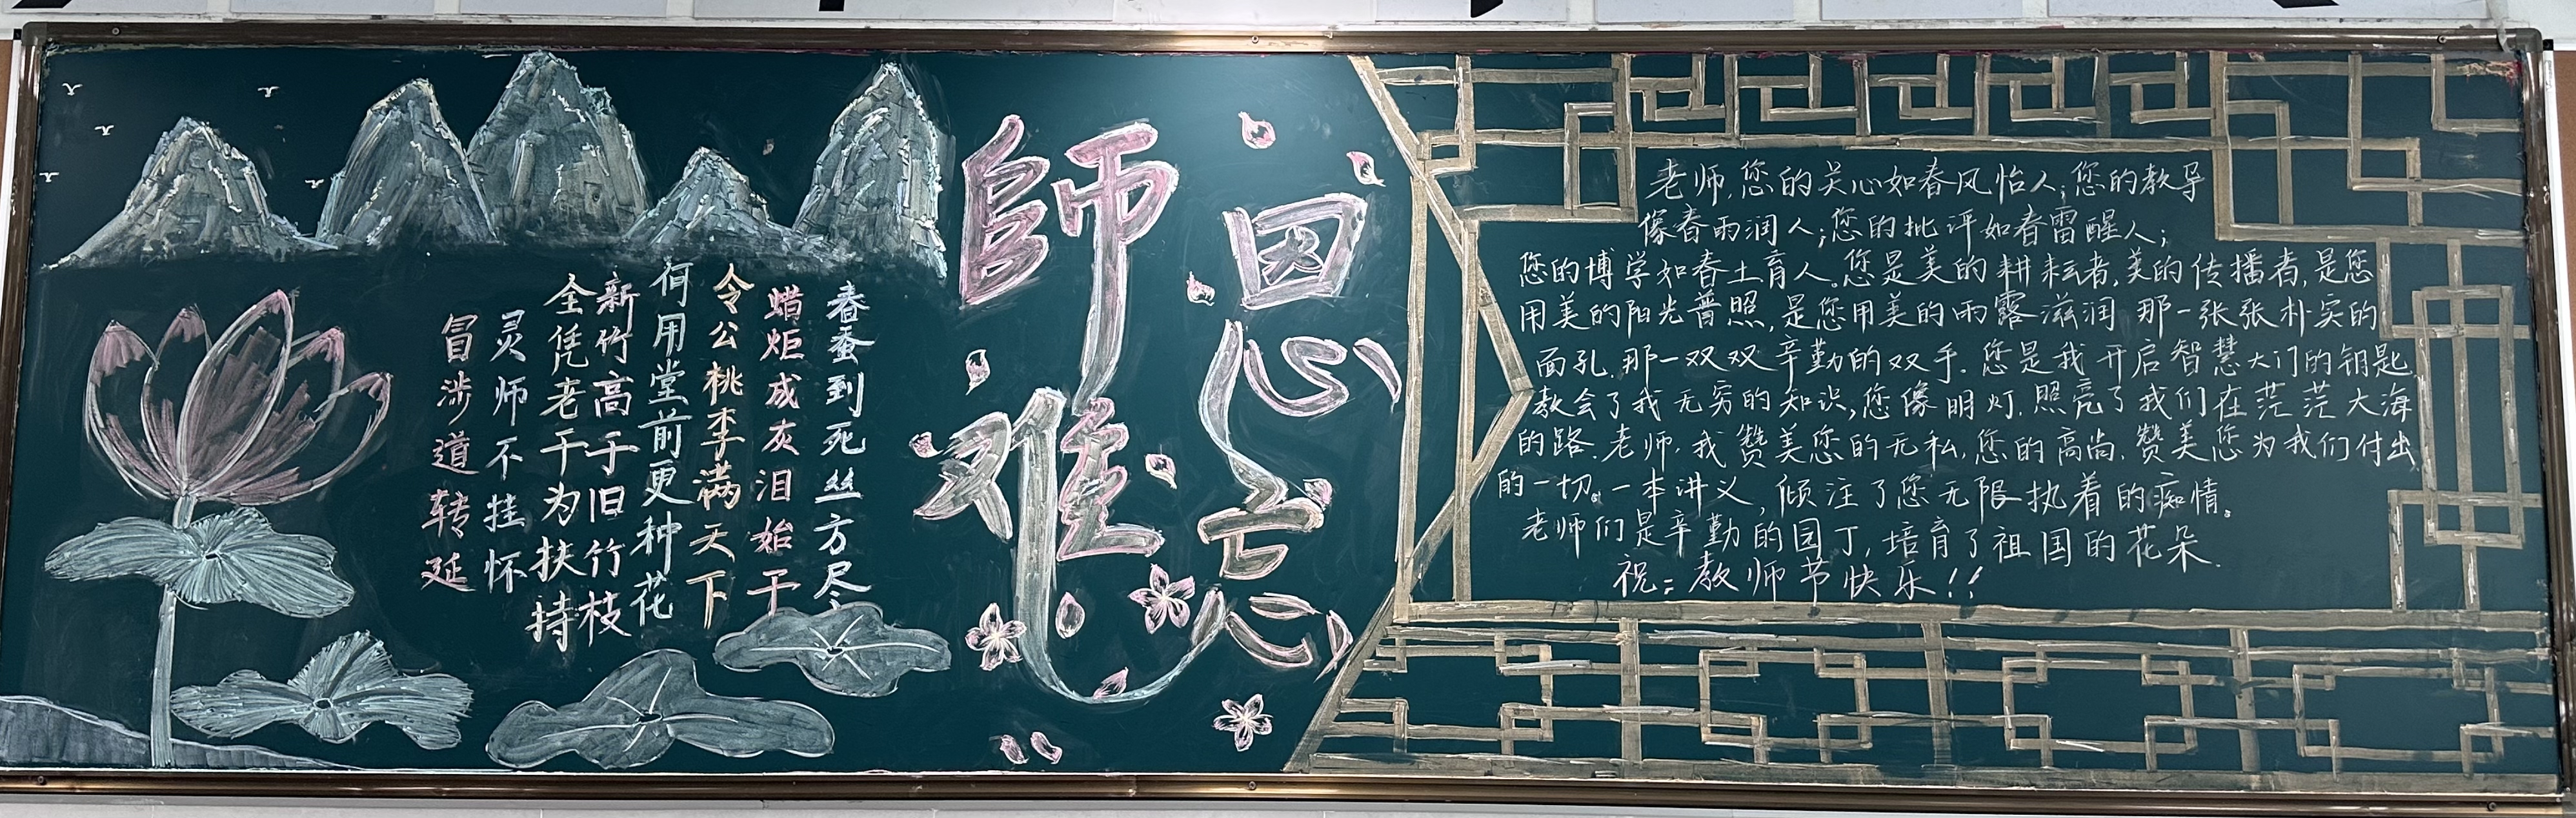 春蚕到死丝方尽
蜡炬成灰泪始干
令公桃李满天下
何用堂前更种花
新竹高于旧竹枝
全凭老干为扶持
灵师不挂怀
冒涉道转延
師恩
难忘
老师,您的关心如春风怡人;您的教导
像春雨润人;您的批评如春雷醒人;
您的博学如春土育人。您是美的耕耘者,美的传播者,是您
用美的阳光普照,是您用美的雨露滋润 那一张张朴实的
面孔.那一双双辛勤的双手.您是我开启智慧大门的钥匙.
教会了我无穷的知识,您像明灯.照亮了我们在茫茫大海
的路.老师,我赞美您的无私,您的高尚.赞美您为我们付出
的一切。一本讲义,倾注了您无限执着的痴情。
老师们是辛勤的园丁,培育了祖国的花朵.
祝:教师节快乐!!